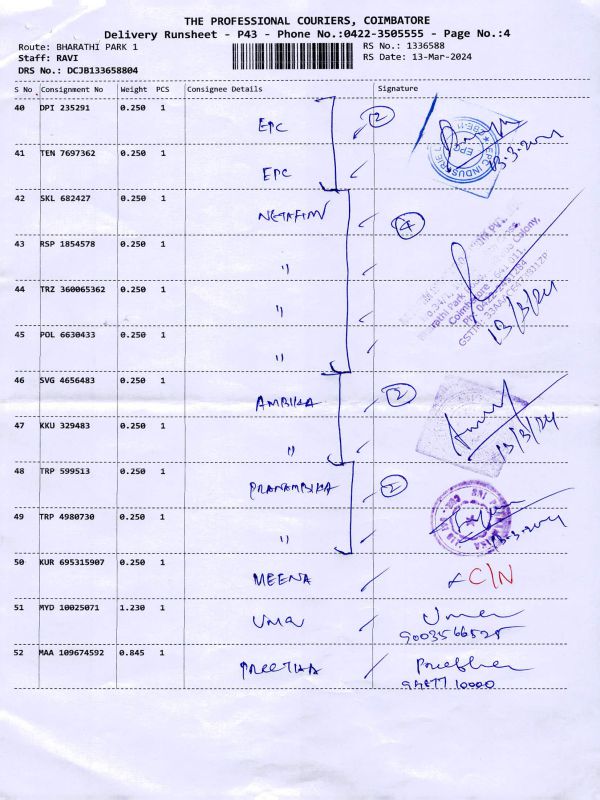 THE PROFESSIONAL COURIERS, COIMBATORE
Delivery Runsheet - P43 - Phone No.:0422-3505555 - Page No.:4
Route: BHARATHI PARK 1 RS No.: 1336588
Staff: RAVI RS Date: 13-Mar-2024
DRS No.: DCJB133658804
S No Consignment No Weight PCS Consignee Details Signature
40 DPI 235291 0.250 1 EPC 2
41 TEN 7697362 0.250 1 EPC 13.3.2024
42 SKL 682427 0.250 1 NETAFIM 4
43 RSP 1854578 0.250 1 "
44 TRZ 360065362 0.250 1 " 13/3/24
45 POL 6630433 0.250 1 "
46 SVG 4656483 0.250 1 AMBIKA 2
47 KKU 329483 0.250 1 " 13/3/24
48 TRP 599513 0.250 1 PRANAMBIKA 2
49 TRP 4980730 0.250 1 " 13.3.2024
50 KUR 695315907 0.250 1 MEENA C/N
51 MYD 10025071 1.230 1 UMA Uma
9003566525
52 MAA 109674592 0.845 1 PREETHA